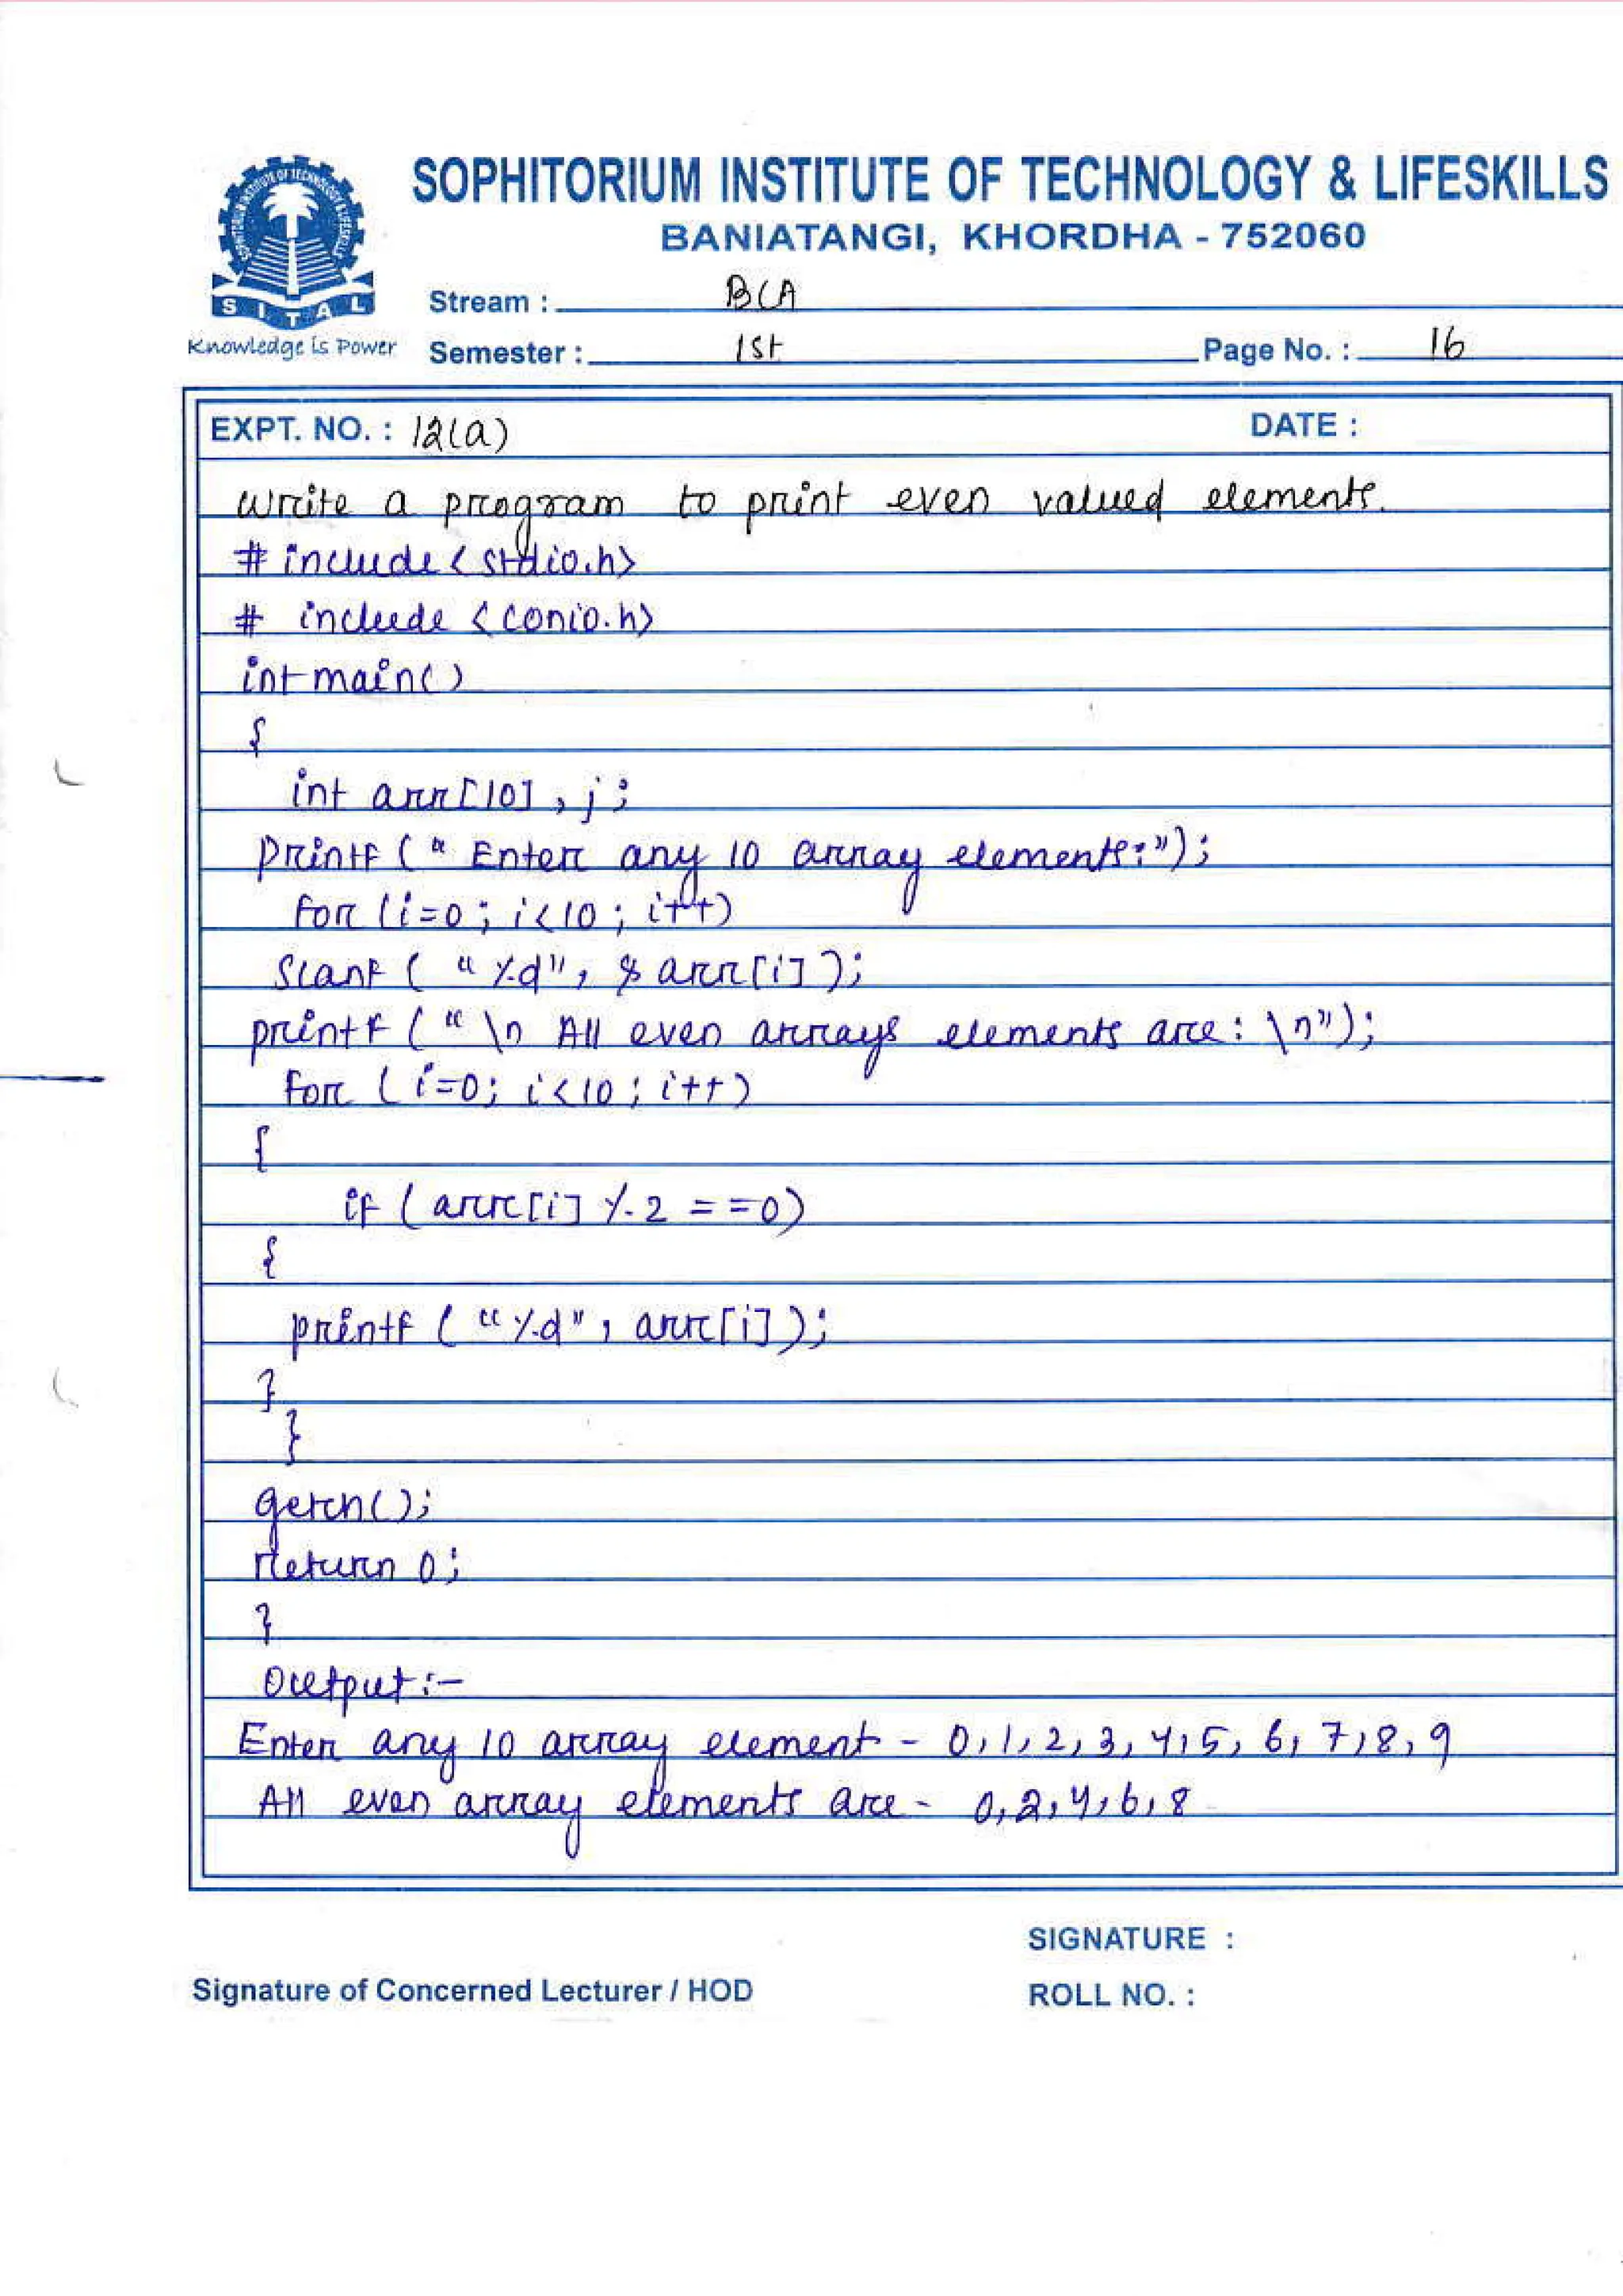 SOPHITORIUM INSTITUTE OF TECHNOLOGY & LIFESKILLS
BANIATANGI, KHORDHA - 752060
SITAL
Knowledge is Power
Stream : BCA
Semester : 1st Page No. : 16
EXPT. NO. : 12(a) DATE :
Write a program to print even valued elements.
# include < stdio.h>
# include < conio.h>
int main()
{
int arr[10], j;
Printf (" Enter any 10 array elements:");
for (i=0; i<10; i++)
Scanf ( "%d", & arr[i] );
printf ( "\n All even arrays elements are: \n");
for ( i=0; i<10; i++)
{
if ( arr[i] % 2 = =0)
{
printf ( "%d", arr[i] );
}
}
getch();
return 0;
}
Output:-
Enter any 10 array element - 0,1,2,3,4,5,6,7,8,9
All even array elements are - 0,2,4,6,8
SIGNATURE :
Signature of Concerned Lecturer / HOD
ROLL NO. :